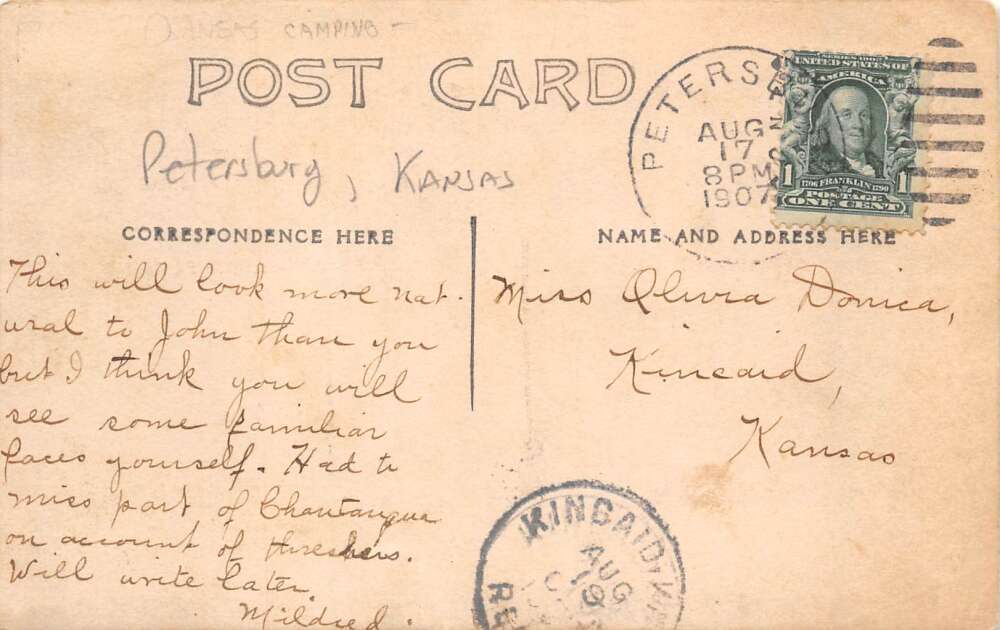 KANSAS CAMPING -
POST CARD
Petersburg, KANSAS
PETERS
AUG
17
8 PM
1907
SERIES 1902
UNITED STATES OF
AMERICA
1706 FRANKLIN 1790
1 1
POSTAGE
ONE CENT
CORRESPONDENCE HERE
This will look more nat-
ural to John than you
but I think you will
see some familiar
faces yourself. Had to
miss part of Chautauqua
on account of threshers.
Will write later.
Mildred.
NAME AND ADDRESS HERE
Miss Olivia Donica,
Kincaid,
Kansas
KINCAID,
AUG
19